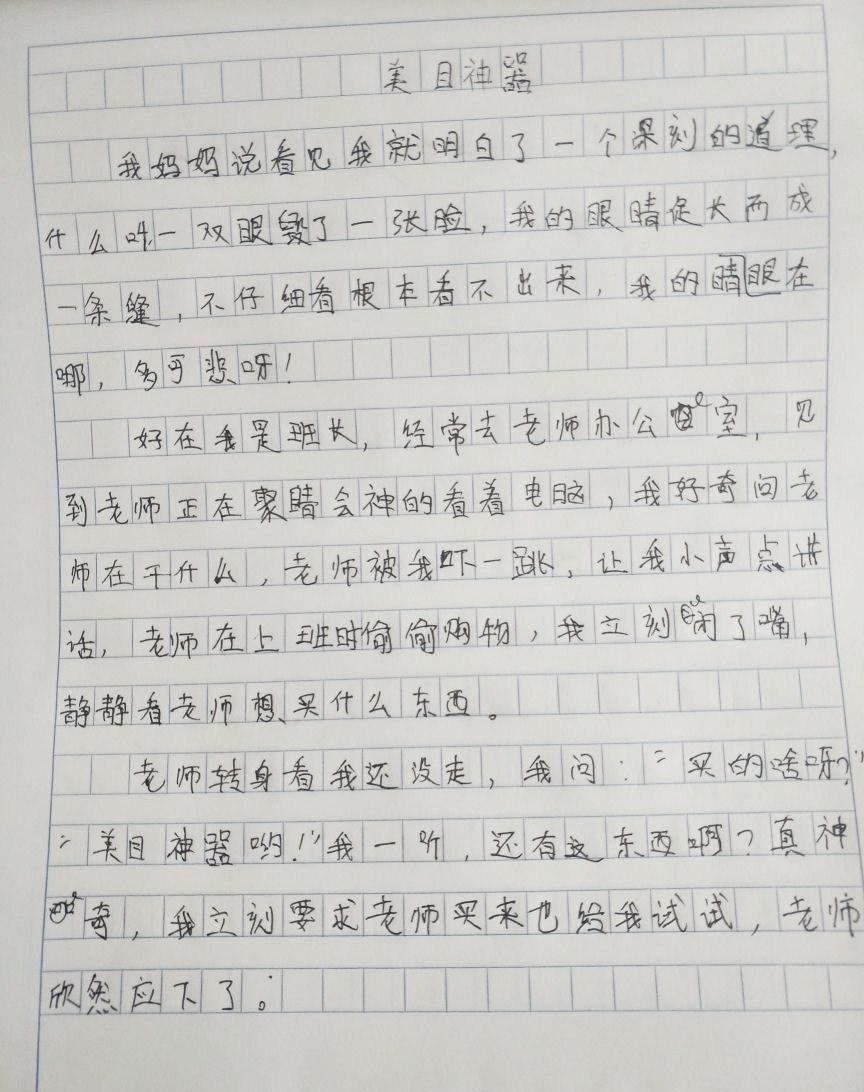 美目神器
我妈妈说看见我就明白了一个深刻的道理,
什么叫一双眼毁了一张脸,我的眼睛促长而成
一条缝,不仔细看根本看不出来,我的睛眼在
哪,多可悲呀!
好在我是班长,经常去老师办公室,见
到老师正在聚睛会神的看着电脑,我好奇问老
师在干什么,老师被我吓一跳,让我小声点讲
话,老师在上班时偷偷购物,我立刻闭了嘴,
静静看老师想买什么东西。
老师转身看我还没走,我问:“买的啥呀?”
“美目神器哟!”我一听,还有这东西啊?真神
奇,我立刻要求老师买来也给我试试,老师
欣然应下了。